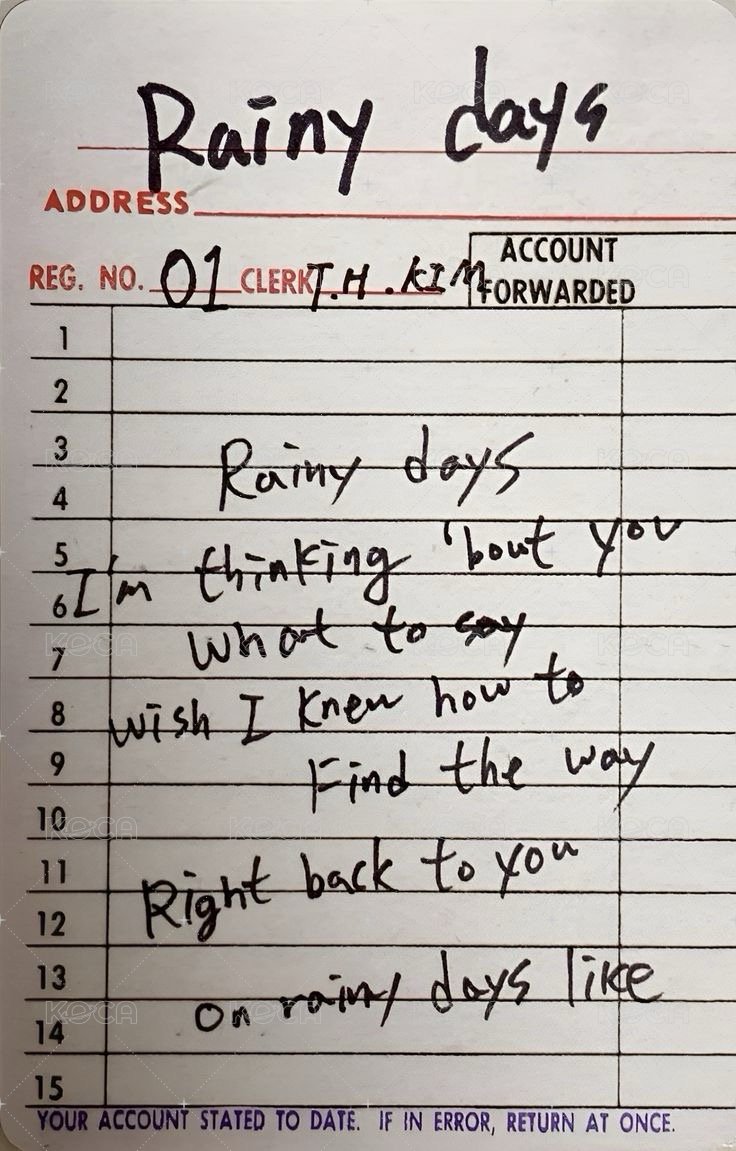 Rainy days
ADDRESS
REG. NO. 01 CLERK T.H. KIM
ACCOUNT
FORWARDED
1
2
3 Rainy days
4
5 I'm thinking 'bout you
6
7 what to say
8 wish I knew how to
9 Find the way
10
11 Right back to you
12
13 on rainy days like
14
15
YOUR ACCOUNT STATED TO DATE. IF IN ERROR, RETURN AT ONCE.
KOCA